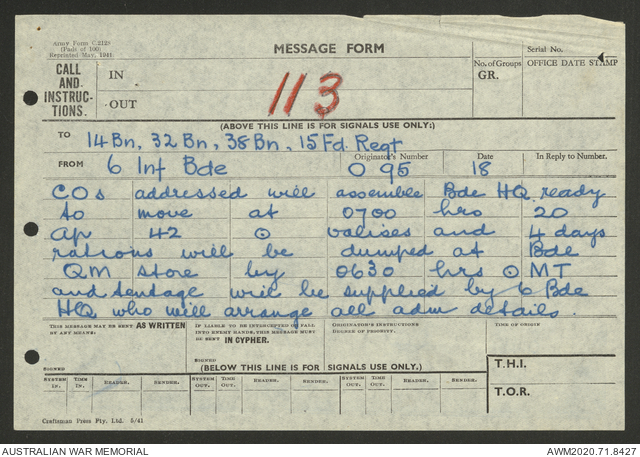 Army Form C.2128
(Pads of 100)
Reprinted May, 1941
MESSAGE FORM
Serial No.
CALL AND INSTRUCTIONS.
IN
OUT
113
No. of Groups
GR.
OFFICE DATE STAMP
(ABOVE THIS LINE IS FOR SIGNALS USE ONLY:)
TO 14 Bn, 32 Bn, 38 Bn, 15 Fd. Regt
FROM 6 Inf Bde
Originator's Number
O 95
Date
18
In Reply to Number.
COs addressed will assemble Bde HQ ready
to move at 0700 hrs 20
Ap 42 ⊙ valises and 4 days
rations will be dumped at Bde
QM store by 0630 hrs ⊙ MT
and tentage will be supplied by 6 Bde
HQ who will arrange all adm details.
THIS MESSAGE MAY BE SENT AS WRITTEN BY ANY MEANS:
IF LIABLE TO BE INTERCEPTED OR FALL INTO ENEMY HANDS, THIS MESSAGE MUST BE SENT IN CYPHER.
ORIGINATOR'S INSTRUCTIONS
DEGREE OF PRIORITY.
TIME OF ORIGIN
SIGNED
SIGNED
(BELOW THIS LINE IS FOR SIGNALS USE ONLY:)
T.H.I.
T.O.R.
SYSTEM IN. TIME IN. READER. SENDER. SYSTEM OUT. TIME OUT. READER. SENDER. SYSTEM OUT. TIME OUT. READER. SENDER.
Craftsman Press Pty. Ltd. 5/41
AUSTRALIAN WAR MEMORIAL
AWM2020.71.8427